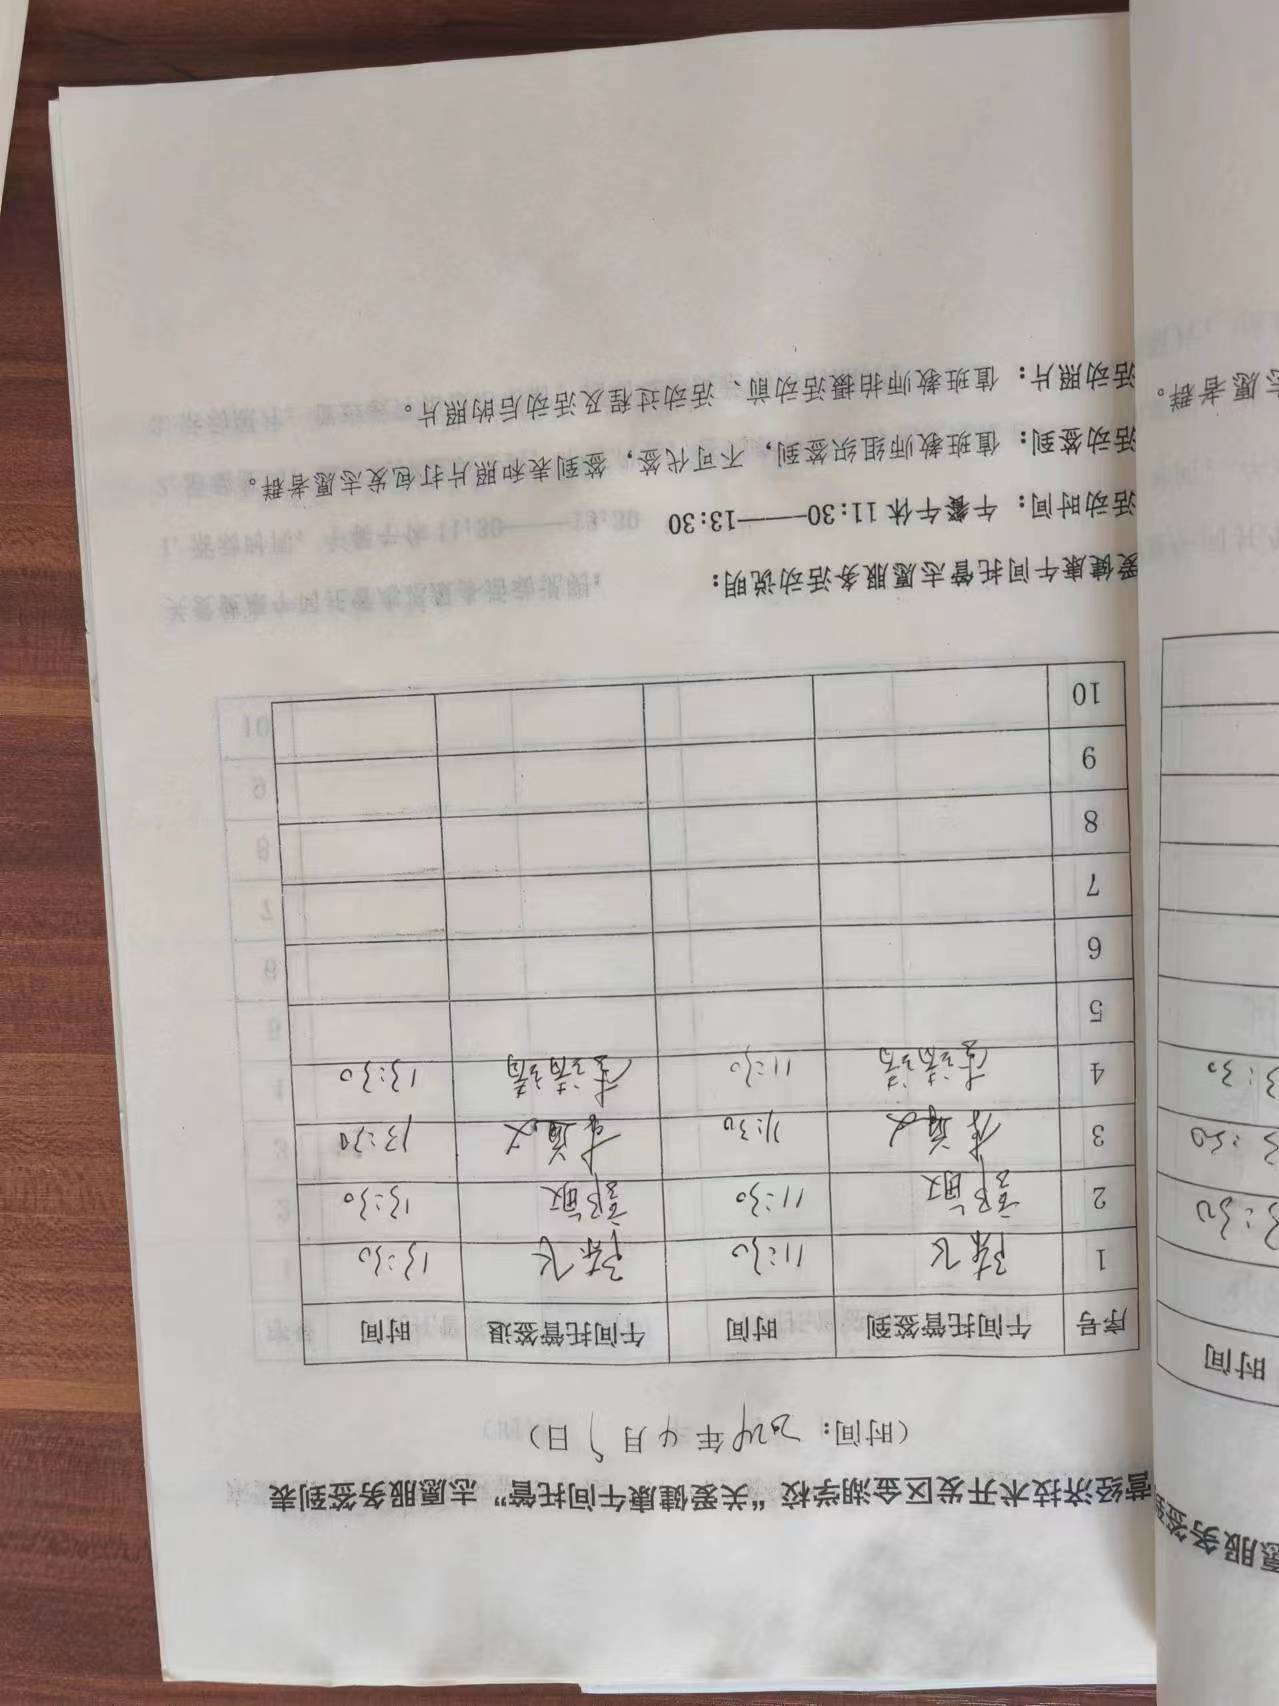 营经济技术开发区金湖学校“关爱健康午间托管”志愿服务签到表
（时间：2024年4月9日）
序号 午间托管签到 时间 午间托管签退 时间
1 陈飞 11:30 陈飞 13:30
2 11:30 13:30
3 11:30 13:30
4 11:30 13:30
5
6
7
8
9
10
爱健康午间托管志愿服务活动说明：
活动时间：午餐午休 11:30——13:30
活动签到：值班教师组织签到，不可代签，签到表和照片打包发志愿者群。
活动照片：值班教师拍摄活动前、活动过程及活动后的照片。
愿服务签到
时间
3:30
3:30
3:30
志愿者群。